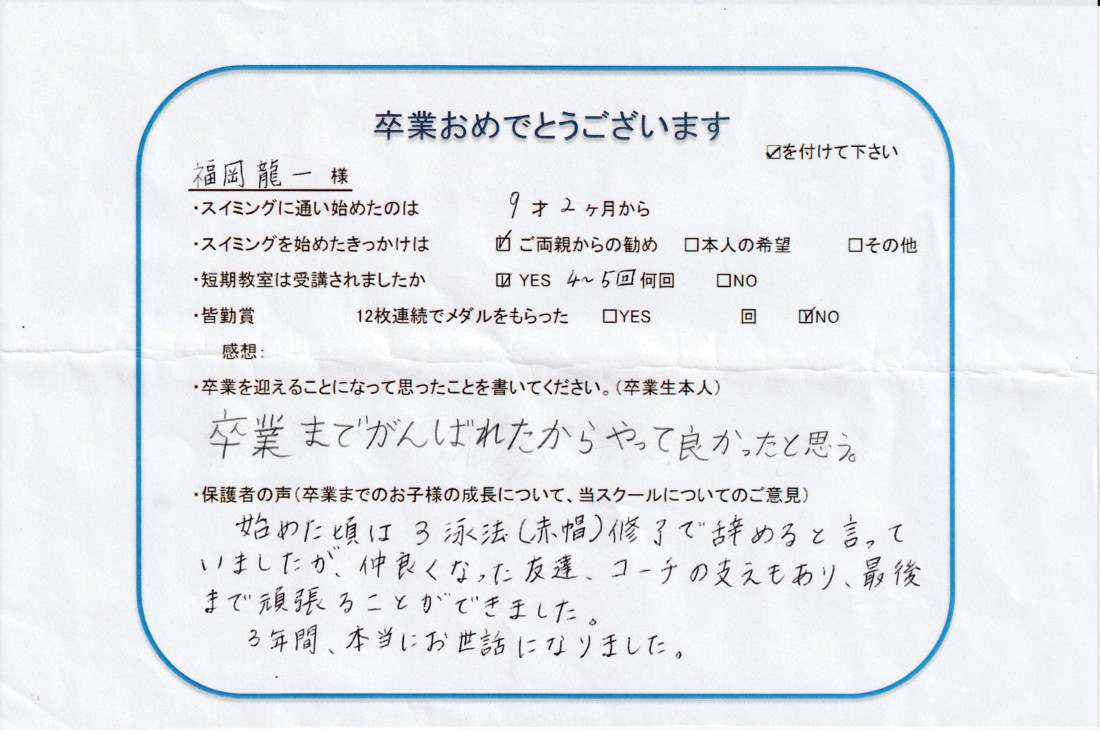 卒業おめでとうございます
☑を付けて下さい
福岡龍一 様
・スイミングに通い始めたのは 9 才 2 ヶ月から
・スイミングを始めたきっかけは ☑ ご両親からの勧め □本人の希望 □その他
・短期教室は受講されましたか ☑ YES 4〜5回 何回 □NO
・皆勤賞 12枚連続でメダルをもらった □YES 回 ☑NO
感想:
・卒業を迎えることになって思ったことを書いてください。(卒業生本人)
卒業までがんばれたからやって良かったと思う。
・保護者の声(卒業までのお子様の成長について、当スクールについてのご意見)
始めた頃は3泳法(赤帽)修了で辞めると言って
いましたが、仲良くなった友達、コーチの支えもあり、最後
まで頑張ることができました。
3年間、本当にお世話になりました。